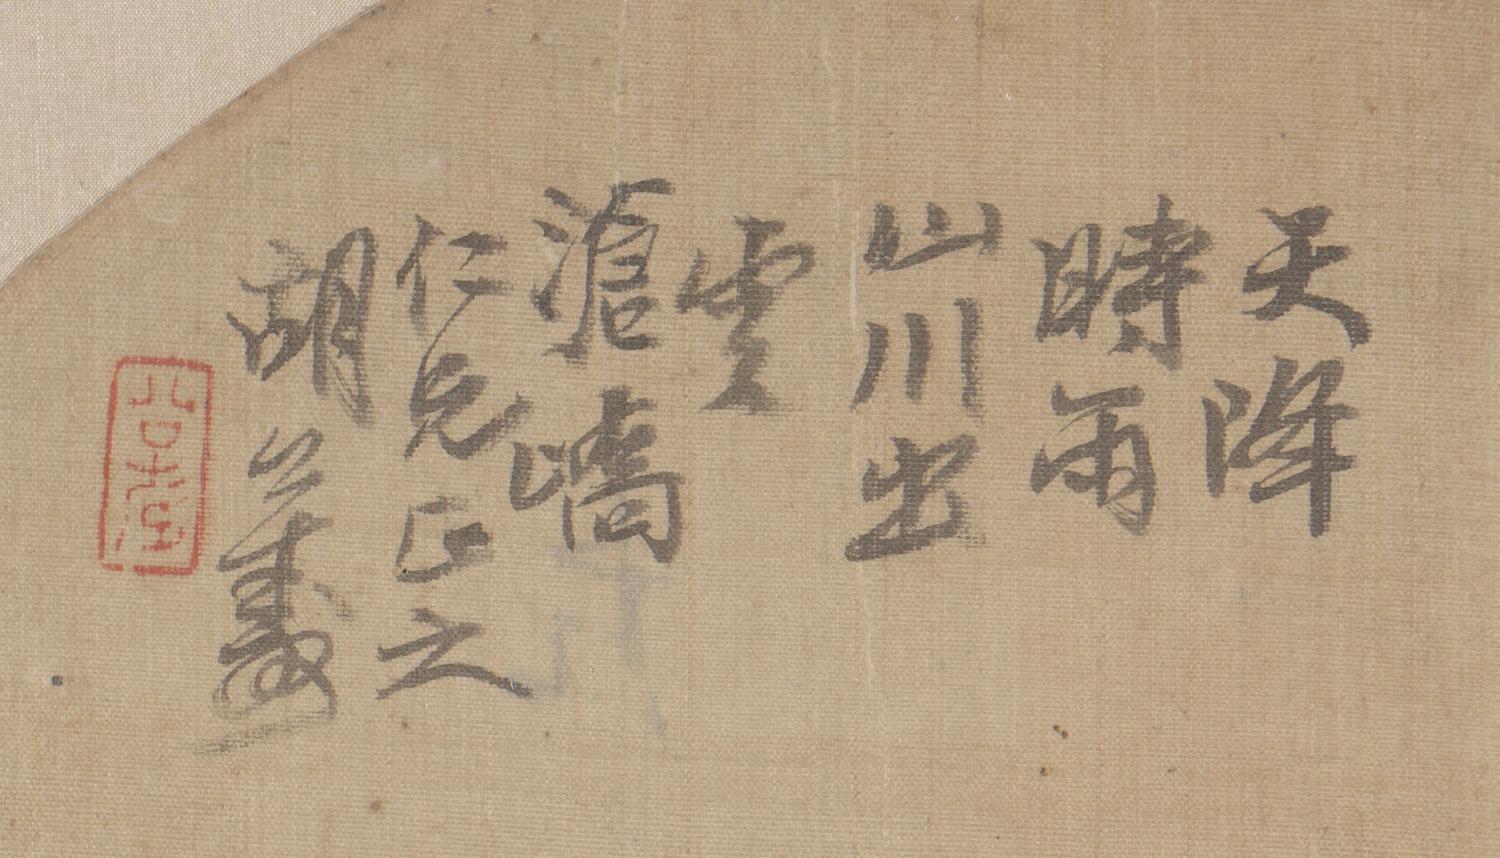 天降
時雨
山川出
雲
滄嶠
仁兄正之
胡公壽